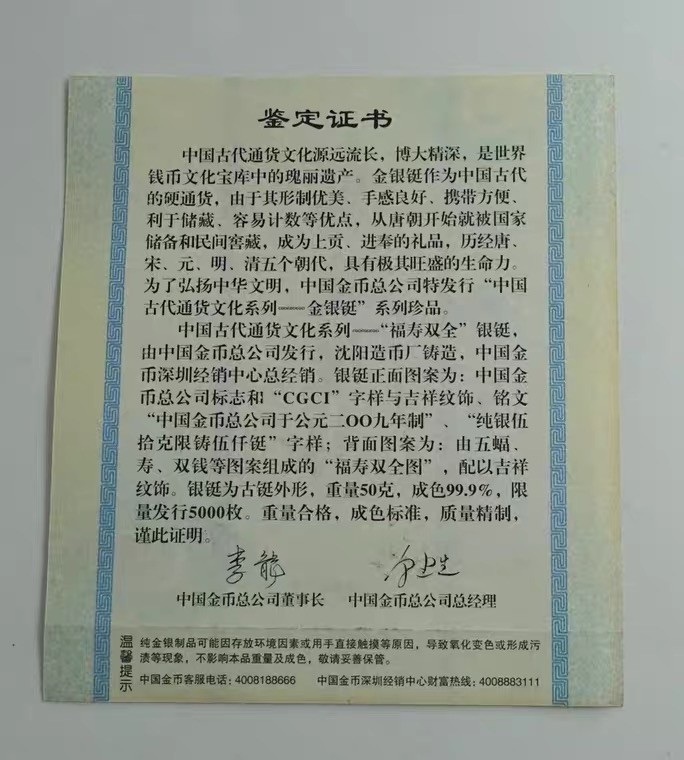 鉴定证书
中国古代通货文化源远流长，博大精深，是世界
钱币文化宝库中的瑰丽遗产。金银铤作为中国古代
的硬通货，由于其形制优美、手感良好、携带方便、
利于储藏、容易计数等优点，从唐朝开始就被国家
储备和民间窖藏，成为上贡、进奉的礼品，历经唐、
宋、元、明、清五个朝代，具有极其旺盛的生命力。
为了弘扬中华文明，中国金币总公司特发行“中国
古代通货文化系列——金银铤”系列珍品。
中国古代通货文化系列——“福寿双全”银铤，
由中国金币总公司发行，沈阳造币厂铸造，中国金
币深圳经销中心总经销。银铤正面图案为：中国金
币总公司标志和“CGCI”字样与吉祥纹饰、铭文
“中国金币总公司于公元二OO九年制”、“纯银伍
拾克限铸伍仟铤”字样；背面图案为：由五蝠、
寿、双钱等图案组成的“福寿双全图”，配以吉祥
纹饰。银铤为古铤外形，重量50克，成色99.9%，限
量发行5000枚。重量合格，成色标准，质量精制，
谨此证明。
中国金币总公司董事长 中国金币总公司总经理
温馨提示
纯金银制品可能因存放环境因素或用手直接触摸等原因，导致氧化变色或形成污
渍等现象，不影响本品重量及成色，敬请妥善保管。
中国金币客服电话：4008188666 中国金币深圳经销中心财富热线：4008883111